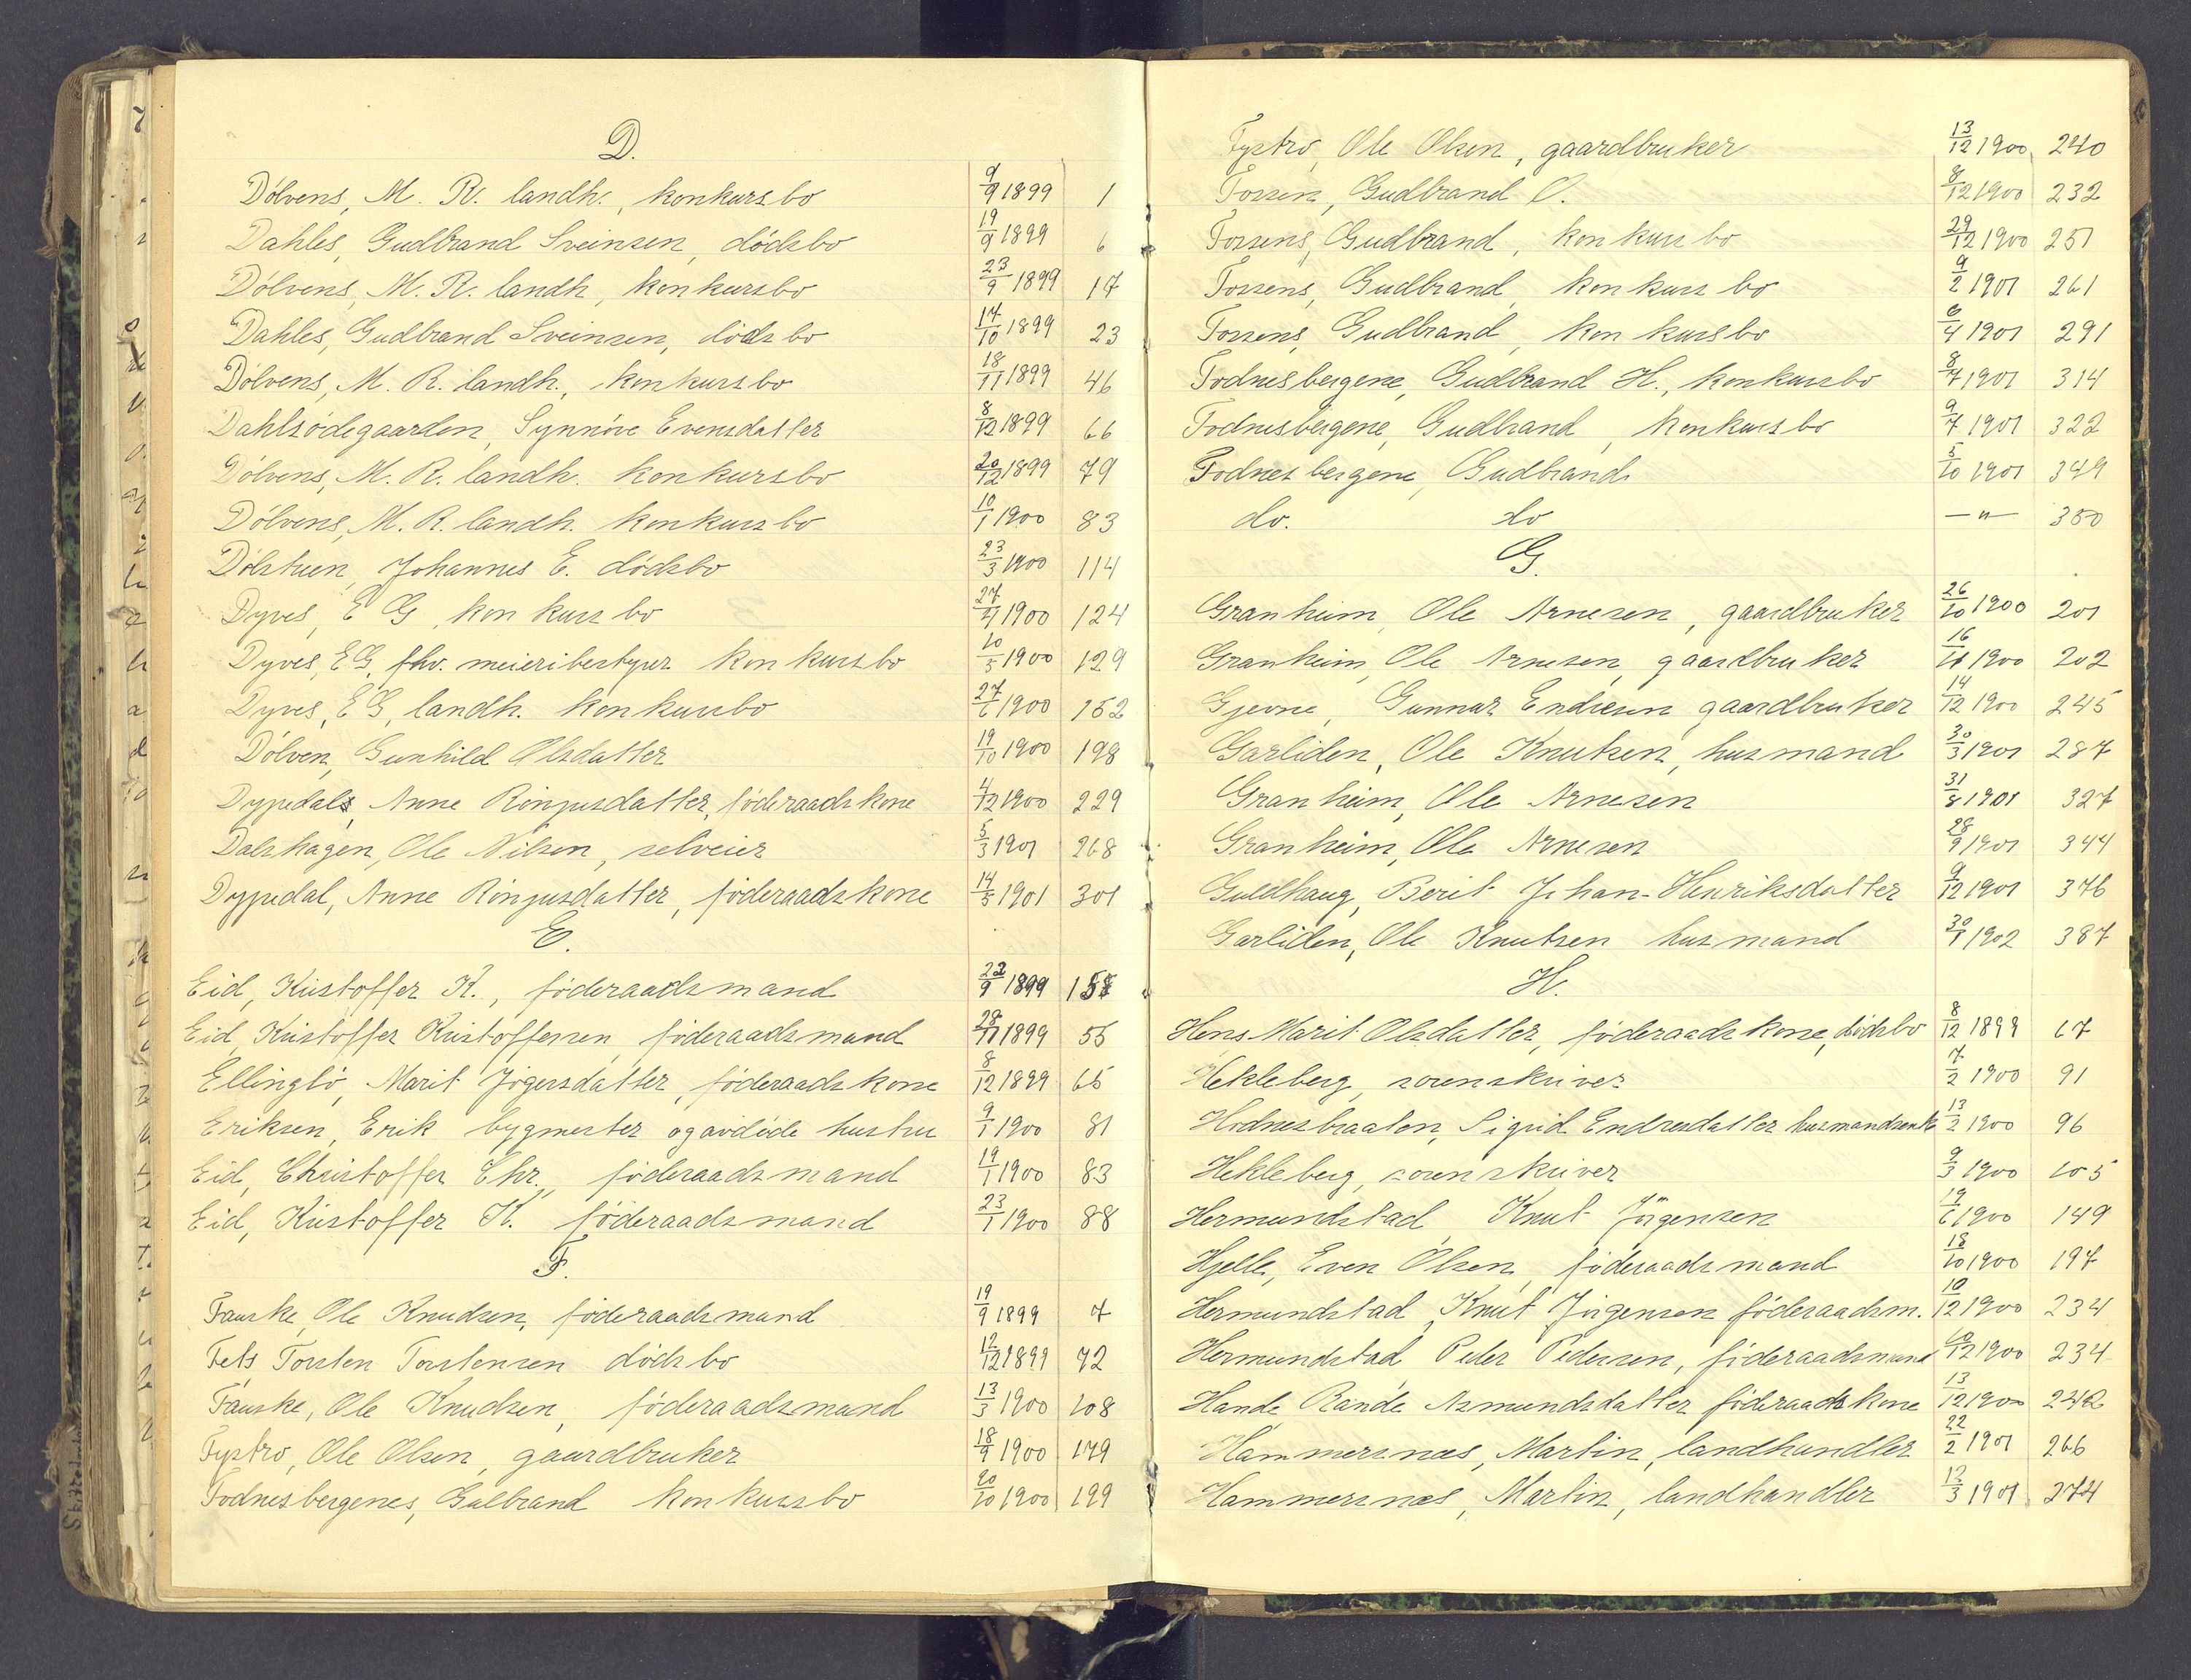 D.
Dölvens, M. R. landh., konkursbo 9/9 1899 1
Dahles, Gudbrand Sveinsen, dödsbo 19/9 1899 6
Dölvens, M. R. landh, konkursbo 23/9 1899 17
Dahles, Gudbrand Sveinsen, dödsbo 14/10 1899 23
Dölvens, M. R. landh., konkursbo 18/11 1899 46
Dahlsödegaarden, Synnöve Evensdatter 8/12 1899 66
Dölvens, M. R. landh. konkursbo 20/12 1899 79
Dölvens, M. R. landh. konkursbo 10/1 1900 83
Dölstuen, Johannes E. dödsbo 23/3 1900 114
Dyves, E G, konkursbo 27/4 1900 124
Dyves, E G, fhv. meieribestyrer konkursbo 10/5 1900 129
Dyves, E G, landh. konkursbo 27/6 1900 152
Dölven, Gunhild Olsdatter 19/10 1900 198
Dypedals, Anne Ringusdatter, föderaadskone 4/12 1900 229
Dalshagen, Ole Nilsen, selveier 5/3 1901 268
Dypedal, Anne Ringusdatter, föderaadskone 14/5 1901 301
E.
Eid, Kristoffer K., föderaadsmand 22/9 1899
Eid, Kristoffer Kristoffersen, föderaadsmand 28/11 1899 55
Ellinglö, Marit Jögersdatter, föderaadskone 8/12 1899 65
Eriksen, Erik bygmester og avdöde hustru 9/1 1900 81
Eid, Christoffer Chr., föderaadsmand 19/1 1900 83
Eid, Kristoffer K. föderaadsmand 23/1 1900 88
F.
Fauske, Ole Knudsen, föderaadsmand 19/9 1899 7
Fets Torsten Torstensen dödsbo 12/12 1899 72
Fauske, Ole Knudsen, föderaadsmand 13/3 1900 108
Fystro, Ole Olsen, gaardbruker 18/9 1900 179
Fodnesbergenes, Gulbrand konkursbo 20/10 1900 199
Fystro, Ole Olsen, gaardbruker 13/12 1900 240
Fossen, Gudbrand O. 8/12 1900 232
Fossens, Gudbrand, konkursbo 29/12 1900 251
Fossens, Gudbrand, konkursbo 9/2 1901 261
Fossens, Gudbrand, konkursbo 6/4 1901 291
Fodnesbergene, Gudbrand H., konkursbo 8/7 1901 314
Fodnesbergene, Gudbrand, konkursbo 9/7 1901 322
Fodnesbergene, Gudbrand 5/10 1901 349
do. do — " — 350
G.
Granheim, Ole Arnesen, gaardbruker 26/10 1900 201
Granheim, Ole Arnesen, gaardbruker 1900 202
Gjevne, Gunnar Endresen gaardbruker 14/12 1900 245
Garliden, Ole Knutsen, husmand 30/3 1901 287
Granheim, Ole Arnesen 31/8 1901 327
Granheim, Ole Arnesen 28/9 1901 344
Guldhaug, Berit Johan-Henriksdatter 9/12 1901 376
Garliden, Ole Knutsen husmand 30/1 1902 387
H.
Hens Marit Olsdatter, föderaadskone, dödsbo 8/12 1899 67
Hekleberg, sorenskriver 7/2 1900 91
Hodnesbraaten, Sigrid Endresdatter husmandsenke 13/2 1900 96
Hekleberg, sorenskriver 9/3 1900 105
Hermundstad, Knut Jörgensen 19/6 1900 149
Hjelle, Even Olsen, föderaadsmand 18/10 1900 197
Hermundstad, Knut Jörgensen föderaadsm. 10/12 1900 234
Hermundstad, Peder Pedersen, föderaadsmand 10/12 1900 234
Hande, Rande Asmundsdatter föderaadskone 13/12 1900 242
Hammersnæs, Martin, landhandler 22/2 1901 266
Hammersnæs, Martin, landhandler 12/3 1901 274